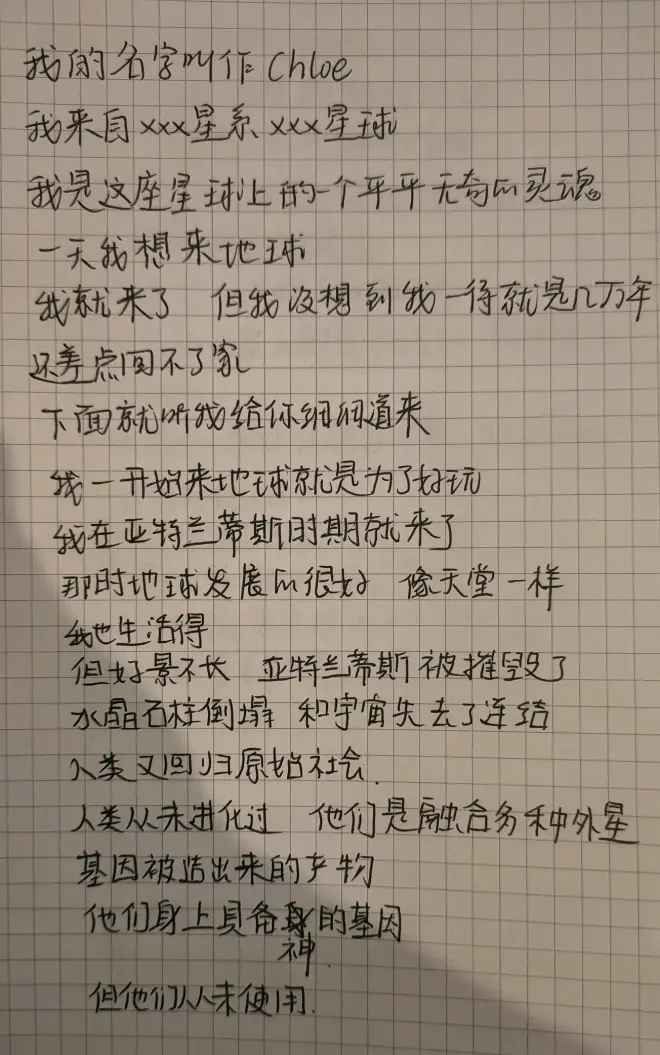 我的名字叫作 Chloe
我来自 xxx星系 xxx星球
我是这座星球上的一个平平无奇的灵魂
一天我想来地球
我就来了 但我没想到我一待就是几万年
还差点回不了家
下面就听我给你细细道来
我一开始来地球就是为了好玩
我在亚特兰蒂斯时期就来了
那时地球发展的很好 像天堂一样
我也生活得
但好景不长 亚特兰蒂斯被摧毁了
水晶石柱倒塌 和宇宙失去了连结
人类又回归原始社会.
人类从未进化过 他们是融合多种外星
基因被造出来的产物
他们身上具备神的基因
但他们从未使用.